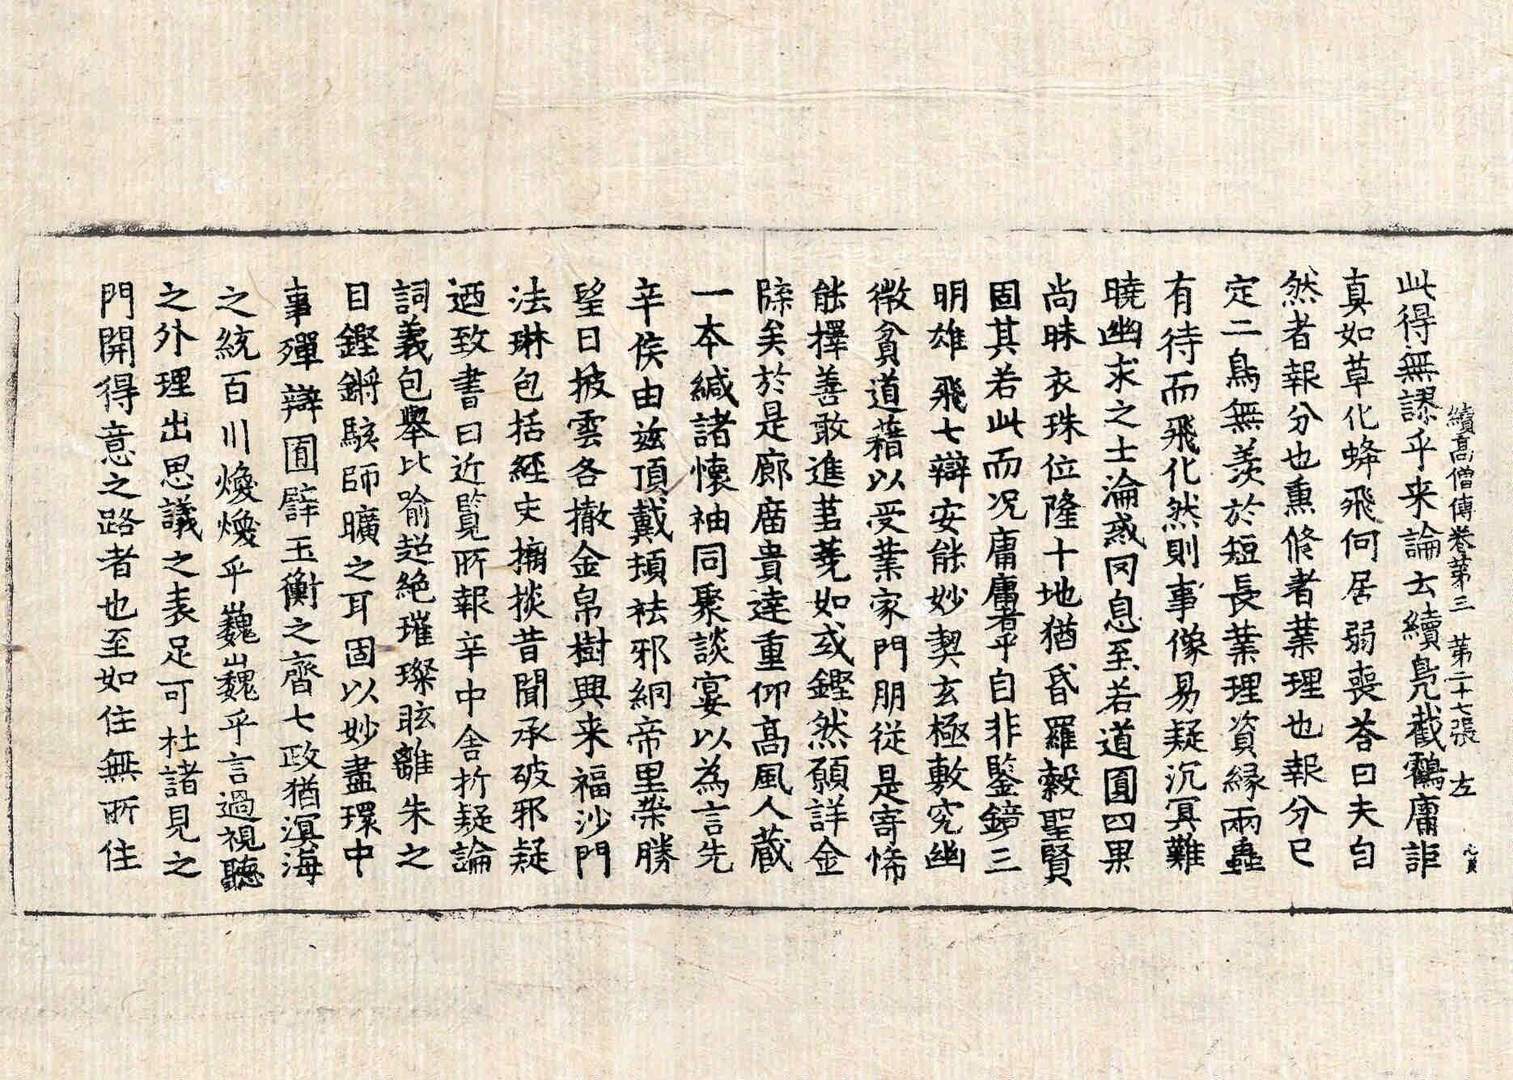 續高僧傳卷第三　第二十七張　左
此得無謬乎来論云續鳧截鶴庸詎
真如草化蜂飛何居弱喪荅曰夫自
然者報分也熏修者業理也報分已
定二鳥無羡於短長業理資縁兩蟲
有待而飛化然則事像易疑沉冥難
曉幽求之士淪惑罔息至若道圓四果
尚昧衣珠位隆十地猶昏羅縠聖賢
固其若此而况庸庸者乎自非鑒鏡三
明雄飛七辯安能妙契玄極敷究幽
微貧道藉以受業家門朋従是寄悕
能擇善敢進蒭蕘如或鏗然願詳金
牒矣於是廊廟貴達重仰髙風人蔵
一本緘諸懷袖同聚談宴以為言先
辛侯由茲頂戴頓袪邪網帝里榮勝
望日披雲各撤金帛樹興来福沙門
法琳包括經史摛掞昔聞承破邪疑
迺致書曰近覧所報辛中舍析疑論
詞義包舉比喻超絶璀璨眩離朱之
目鏗鏘駭師曠之耳固以妙盡環中
事殫辯囿譬玉衡之齊七政猶溟海
之統百川煥煥乎巍巍乎言過視聽
之外理出思議之表足可杜諸見之
門開得意之路者也至如住無所住